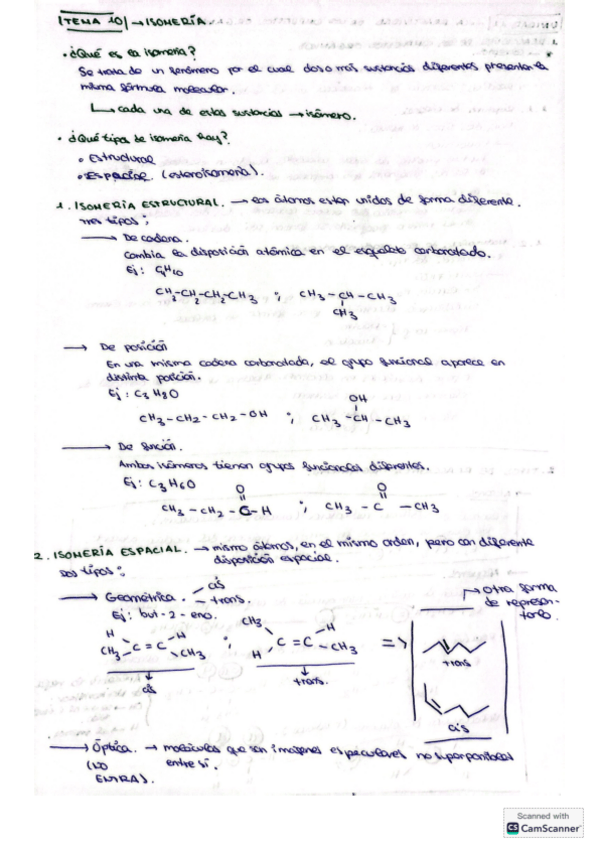 TEMA 10 → ISOMERÍA.
• ¿Qué es la isomería?
Se trata de un fenómeno por el cual dos o más sustancias diferentes presentan la
misma fórmula molecular.
↳ cada una de estas sustancias → isómero.
• ¿Qué tipos de isomería hay?
• Estructural
• Espacial (estereoisomería).
1. ISOMERÍA ESTRUCTURAL. → los átomos están unidos de forma diferente.
Tres tipos:
→ De cadena.
Cambia la disposición atómica en el esqueleto carbonatado.
Ej: C4H10
CH3-CH2-CH2-CH3 ; CH3-CH-CH3
CH3
→ De posición
En una misma cadena carbonatada, el grupo funcional aparece en
distinta posición.
Ej: C3H8O
OH
CH3-CH2-CH2-OH ; CH3-CH-CH3
→ De función.
Ambos isómeros tienen grupos funcionales diferentes.
Ej: C3H6O
O O
CH3-CH2-C-H ; CH3-C-CH3
2. ISOMERÍA ESPACIAL. → mismo átomos, en el mismo orden, pero con diferente
disposición espacial.
Dos tipos:
→ Geométrica. cis
trans.
Ej: but-2-eno.
Otra forma
de represen-
tarlo.
H H CH3 H
CH3 C=C CH3 ; H C=C CH3 =>
cis trans.
trans
cis
→ Óptica. → moléculas que son imágenes especulares no superponibles
(NO entre sí.
ENTRA).
Scanned with
CS CamScanner